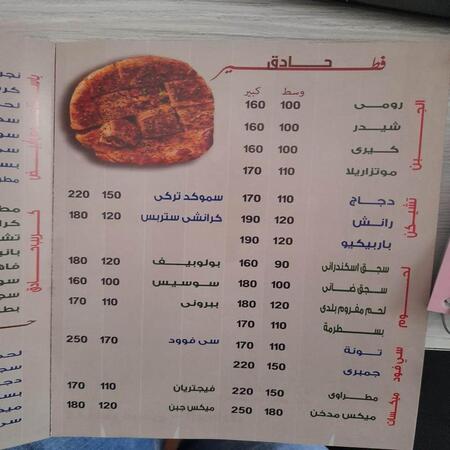 فطير حادق
وسط كبير
الجبن
رومى 100 160
شيدر 100 160
كيرى 100 160
موتزاريلا 110 170
تشيكن
دجاج 110 170 سموكد تركى 150 220
رانش 120 190 كرانشى ستربس 120 180
باربيكيو 120 190
لحوم
سجق اسكندرانى 90 160 بولوبيف 120 180
سجق ضانى 100 180 سوسيس 100 160
لحم مفروم بلدى 120 180 ببرونى 110 170
بسطرمة 110 170
سي فود
تونة 110 170 سى فوود 170 250
جمبرى 150 220
ميكسات
مطراوى 150 220 فيجتريان 110 170
ميكس مدخن 180 250 ميكس جبن 120 180